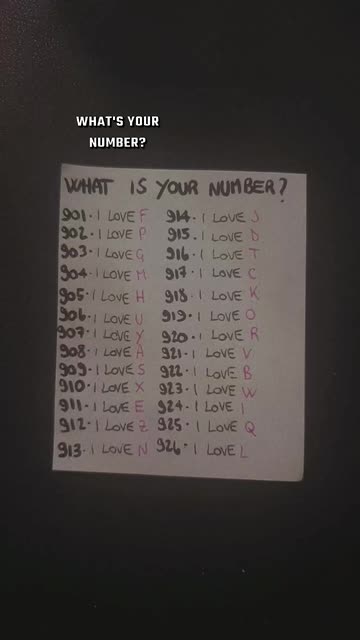 WHAT'S YOUR
NUMBER?
WHAT IS YOUR NUMBER?
901. I LOVE F
902. I LOVE P
903. I LOVE G
904. I LOVE M
905. I LOVE H
906. I LOVE U
907. I LOVE Y
908. I LOVE A
909. I LOVE S
910. I LOVE X
911. I LOVE E
912. I LOVE Z
913. I LOVE N
914. I LOVE J
915. I LOVE D
916. I LOVE T
917. I LOVE C
918. I LOVE K
919. I LOVE O
920. I LOVE R
921. I LOVE V
922. I LOVE B
923. I LOVE W
924. I LOVE I
925. I LOVE Q
926. I LOVE L